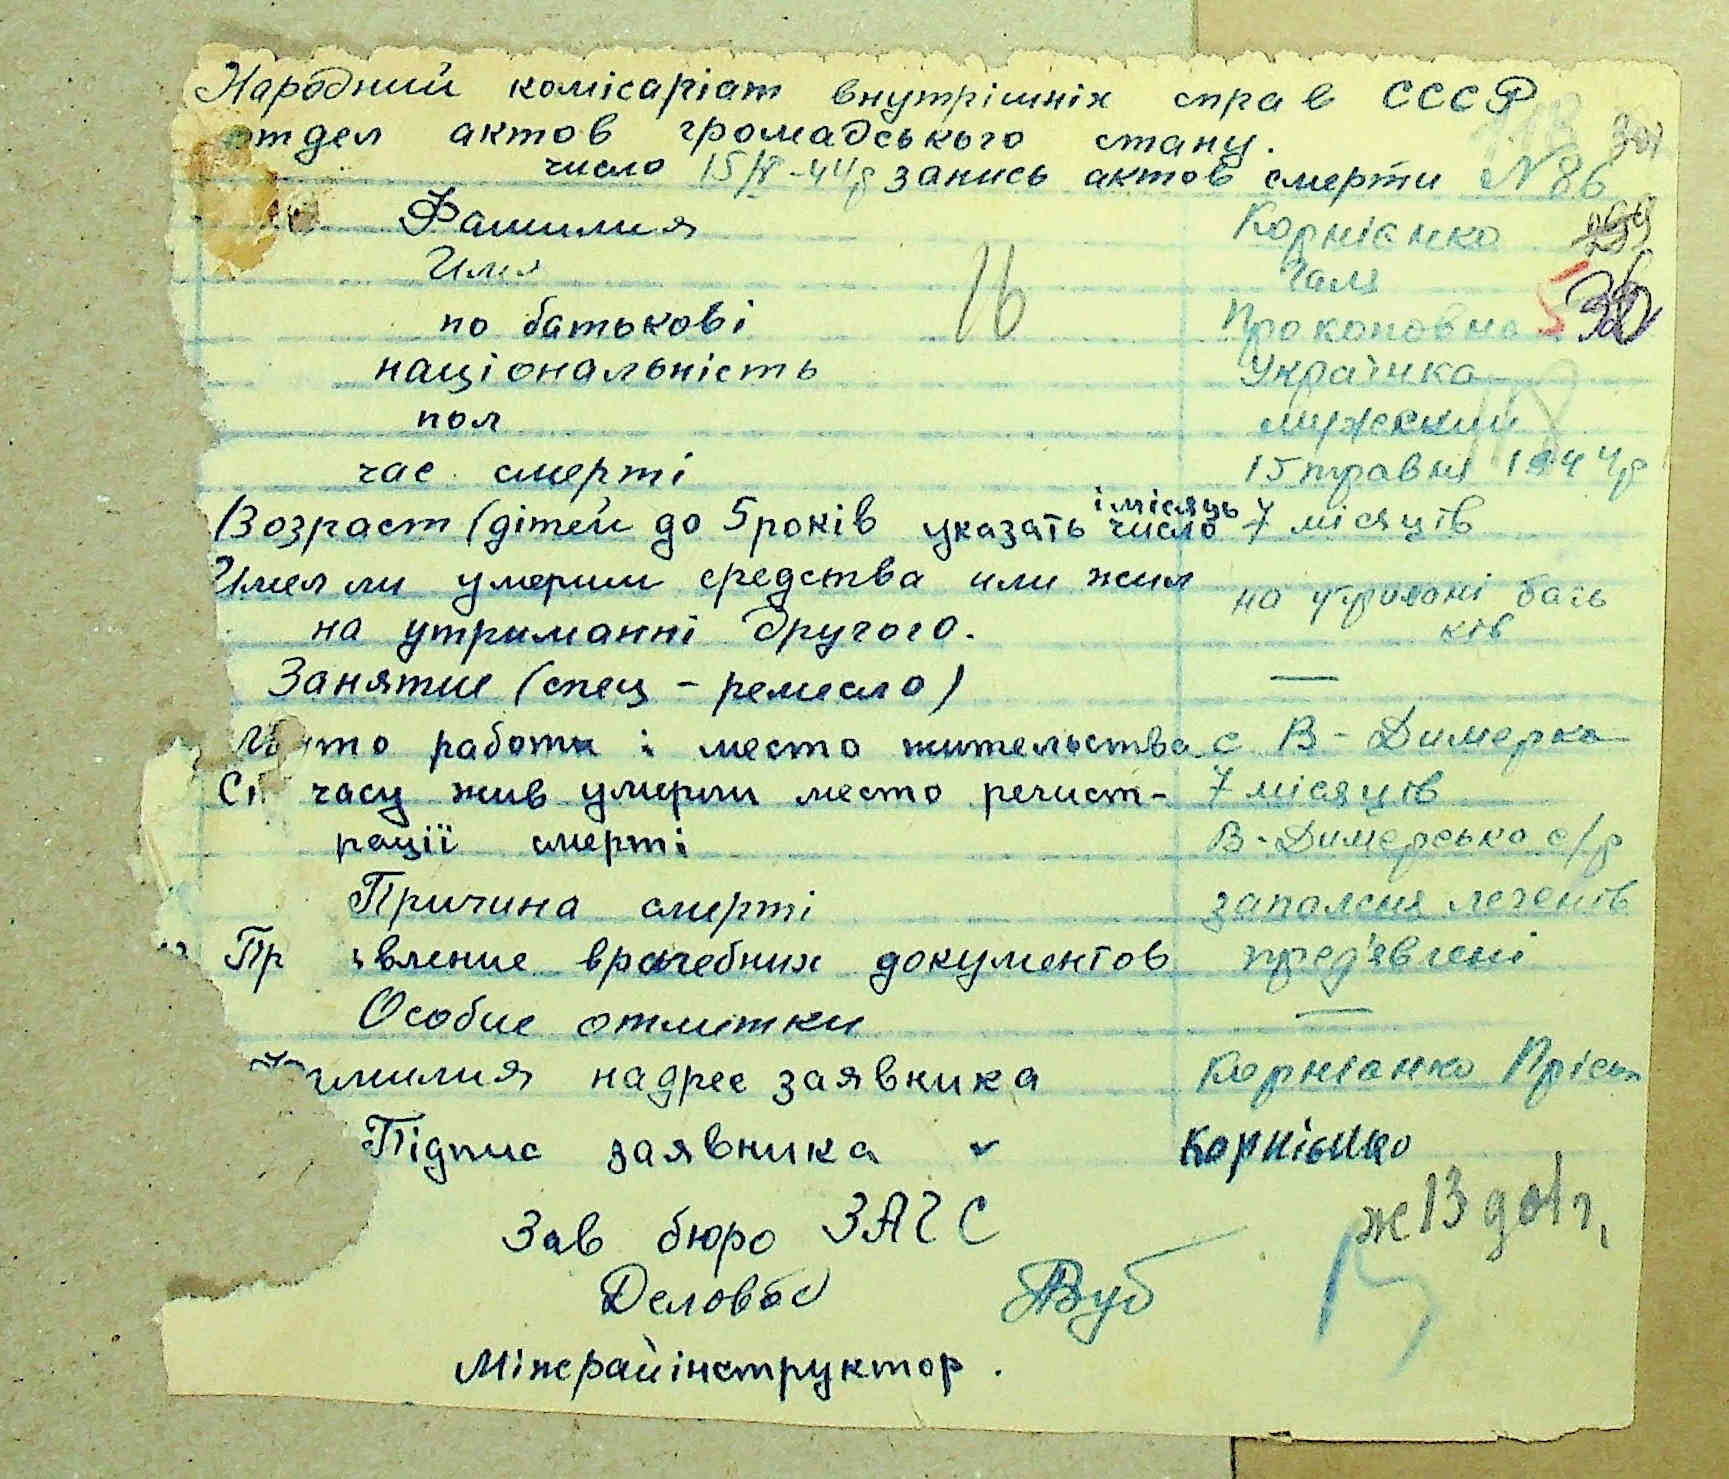 Народний комісаріат внутрішніх справ СССР
отдел актов громадського стану.
число 15/V-44р запись актов смерти N 86
Фамилия Корнієнко
Имя Галя
по батькові Прокоповна
національність Українка
пол мужский
час смерті 15 травня 1944р
Возраст (дітей до 5 років указать число і місяць 7 місяців
Имел ли умерши средства или жил
на утриманні другого. на батьків
Занятие (спец - ремесло) —
Место работи і место жительства с В-Димерка
часу жив умерши место регист- 7 місяців
рації смерті В-Димерсько с/р
Причина смерті запалення легенів
Пр явление врачебних документов пред'явлені
Особие отметки —
Фамилия надрес заявника Корнієнко
Підпис заявника ✓ Корнієнко
ж 13 д 01 г.
Зав бюро ЗАГС
Деловод
Міжрайінструктор.
16